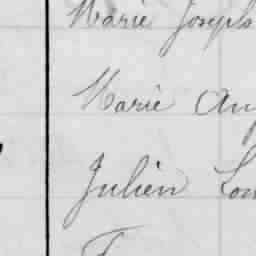 Marie Joseph
Marie Ang
Julien Lou